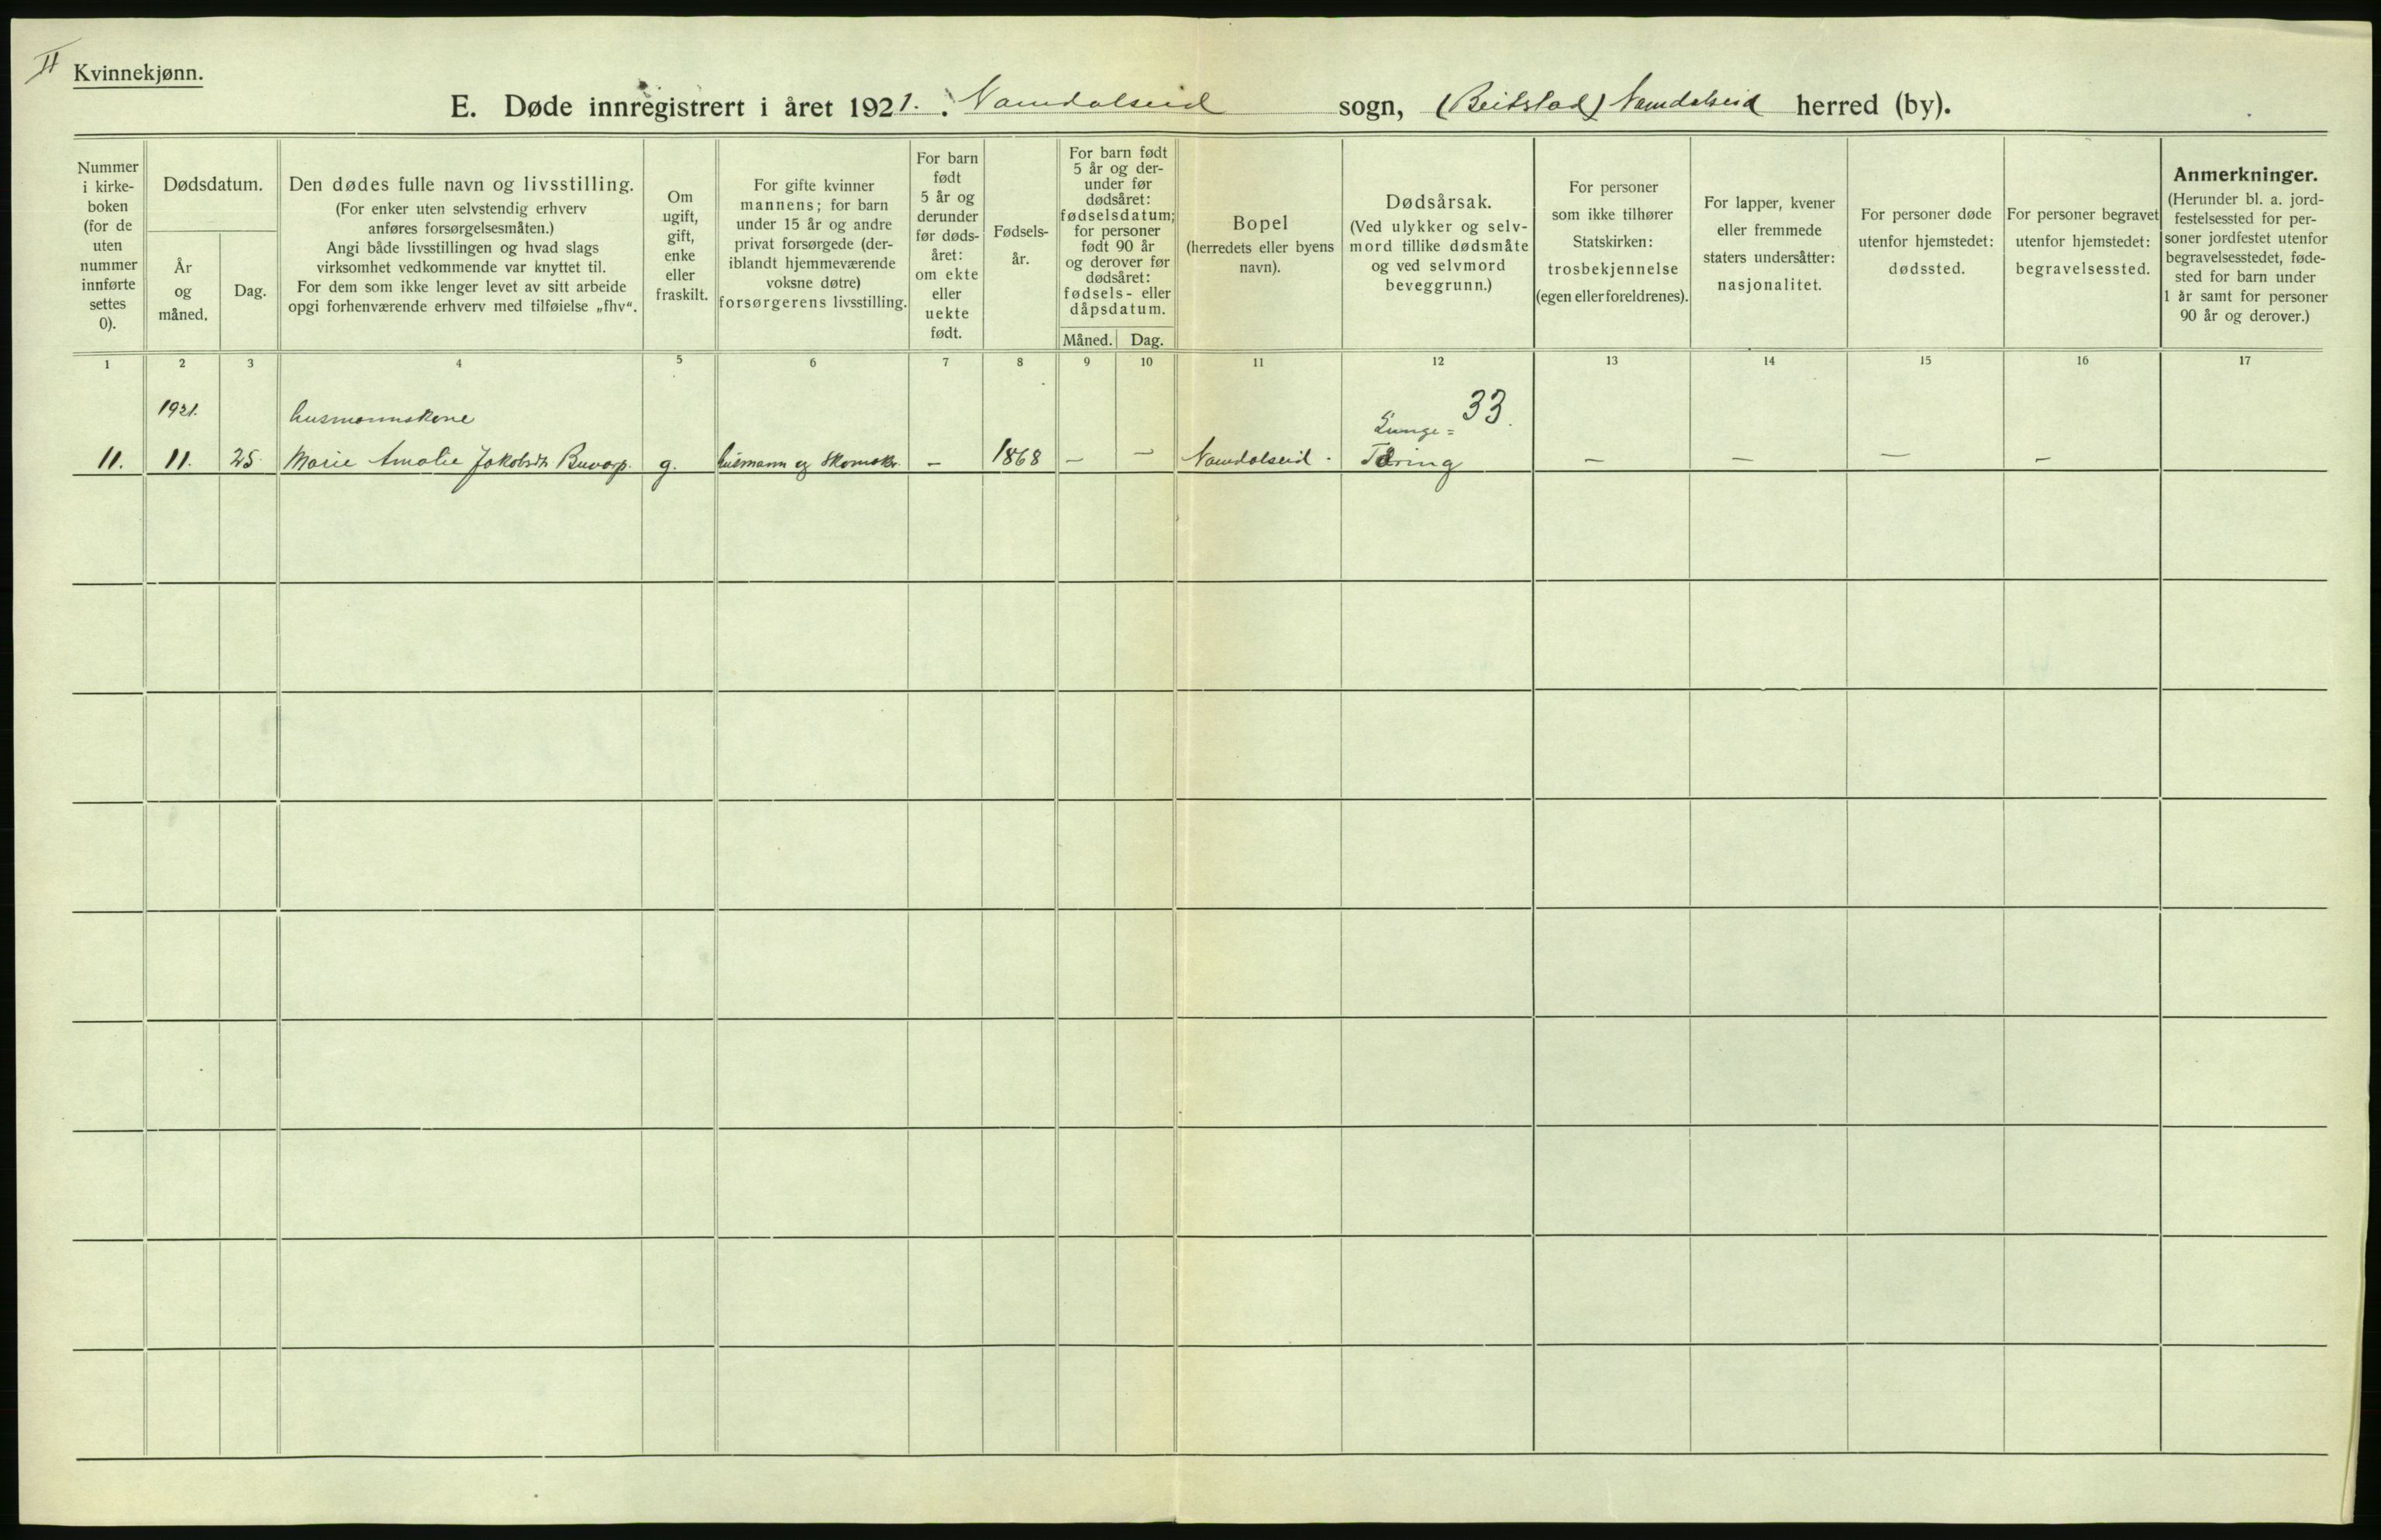 II
Kvinnekjønn.
E. Døde innregistrert i året 1921. Namdalseid sogn, (Beitstad) Namdalseid herred (by).
Nummer
i kirke-
boken
(for de
uten
nummer
innførte
settes
0).
Dødsdatum.
År
og
måned.
Dag.
Den dødes fulle navn og livsstilling.
(For enker uten selvstendig erhverv
anføres forsørgelsesmåten.)
Angi både livsstillingen og hvad slags
virksomhet vedkommende var knyttet til.
For dem som ikke lenger levet av sitt arbeide
opgi forhenværende erhverv med tilføielse „fhv“.
Om
ugift,
gift,
enke
eller
fraskilt.
For gifte kvinner
mannens; for barn
under 15 år og andre
privat forsørgede (der-
iblandt hjemmeværende
voksne døtre)
forsørgerens livsstilling.
For barn
født
5 år og
derunder
før døds-
året:
om ekte
eller
uekte
født.
Fødsels-
år.
For barn født
5 år og der-
under før
dødsåret:
fødselsdatum;
for personer
født 90 år
og derover før
dødsåret:
fødsels- eller
dåpsdatum.
Måned.
Dag.
Bopel
(herredets eller byens
navn).
Dødsårsak.
(Ved ulykker og selv-
mord tillike dødsmåte
og ved selvmord
beveggrunn.)
For personer
som ikke tilhører
Statskirken:
trosbekjennelse
(egen eller foreldrenes).
For lapper, kvener
eller fremmede
staters undersåtter:
nasjonalitet.
For personer døde
utenfor hjemstedet:
dødssted.
For personer begravet
utenfor hjemstedet:
begravelsessted.
Anmerkninger.
(Herunder bl. a. jord-
festelsessted for per-
soner jordfestet utenfor
begravelsesstedet, føde-
sted for barn under
1 år samt for personer
90 år og derover.)
1 2 3 4 5 6 7 8 9 10 11 12 13 14 15 16 17
1921. husmannskone Lunge= 33.
11. 11. 25. Marie Amalie Jakobsdt. Buvarp. g. husmann og skomakr. – 1868 – – Namdalseid. Tæring – – – –